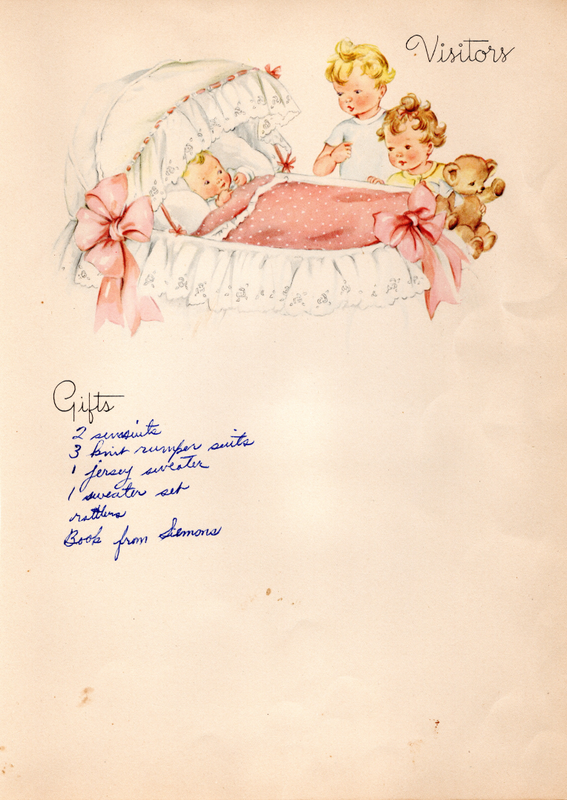 Visitors
Gifts
2 sunsuits
3 knit rumper suits
1 jersey sweater
1 sweater set
rattlers
Book from Siemons